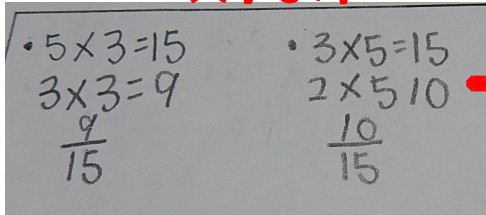 • 5 × 3 = 15
3 × 3 = 9
9
15
• 3 × 5 = 15
2 × 5 10
10
15